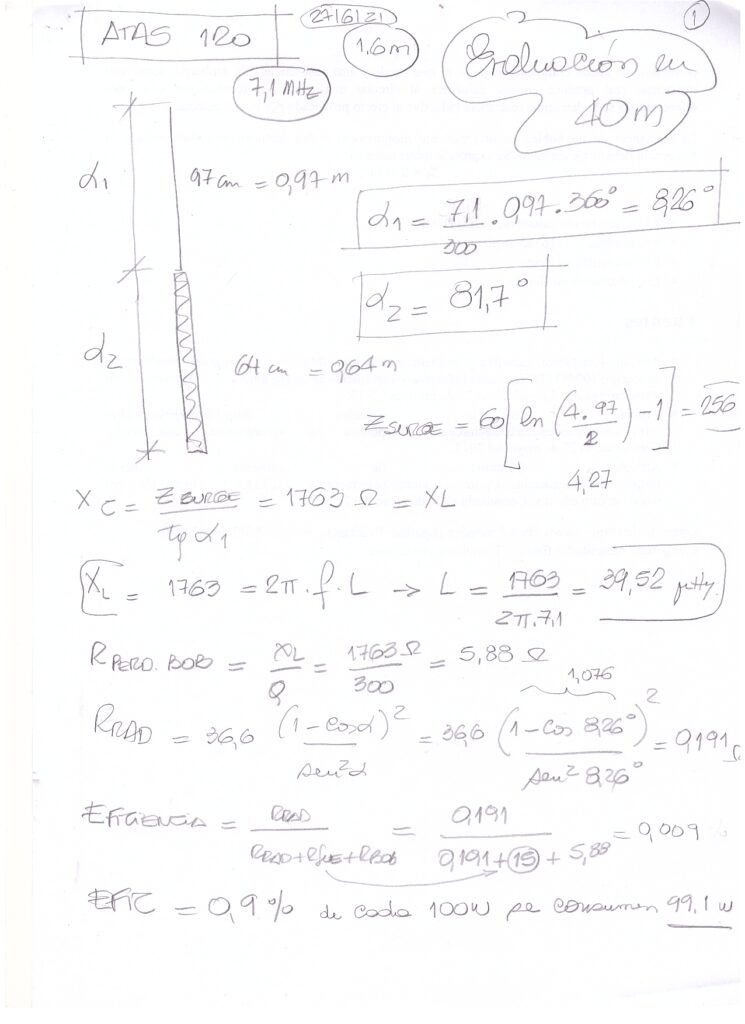 27/6/21
1
ATAS 120
1,6m
Evaluación en
40m
7,1 MHz
α1
97 cm = 0,97 m
α1 = 7,1/300 . 0,97 . 360° = 8,26°
α2 = 81,7°
α2
64 cm = 0,64 m
Z SURGE = 60 [ln (4.97/2) - 1] = 256
4,27
XC = Z SURGE / tg α1 = 1763 Ω = XL
XL = 1763 = 2π.f.L → L = 1763 / 2π.7,1 = 39,52 μHy.
R PERD. BOB = XL/Q = 1763 Ω / 300 = 5,88 Ω
1,076
R RAD = 36,6 (1 - cos α)² / sen² α = 36,6 (1 - cos 8,26°)² / sen² 8,26° = 0,191 Ω
EFICIENCIA = RRAD / = 0,191 / 0,191 + 15 + 5,88 = 0,009
EFIC = 0,9% de cada 100W se consumen 99,1 W